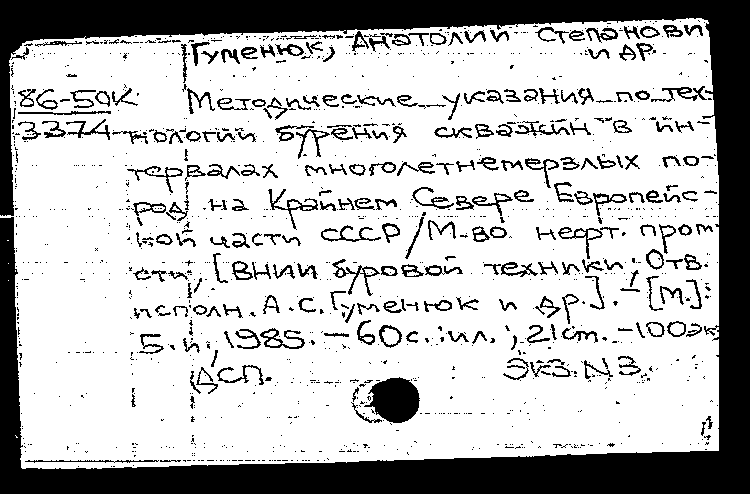 Гуменюк, Анатолий Степанови
и др.
86-50К Методические указания по тех-
3374 нологии бурения скважин в ин-
тервалах многолетнемерзлых по-
род на Крайнем Севере Европейс-
кой части СССР/М-во нефт. пром
сти, [ВНИИ буровой техники; Отв.
исполн. А.С. Гуменюк и др.]. - [М.]:
Б.и., 1985. - 60с.:ил.; 21см. -100эк
ДСП. Экз.N3.